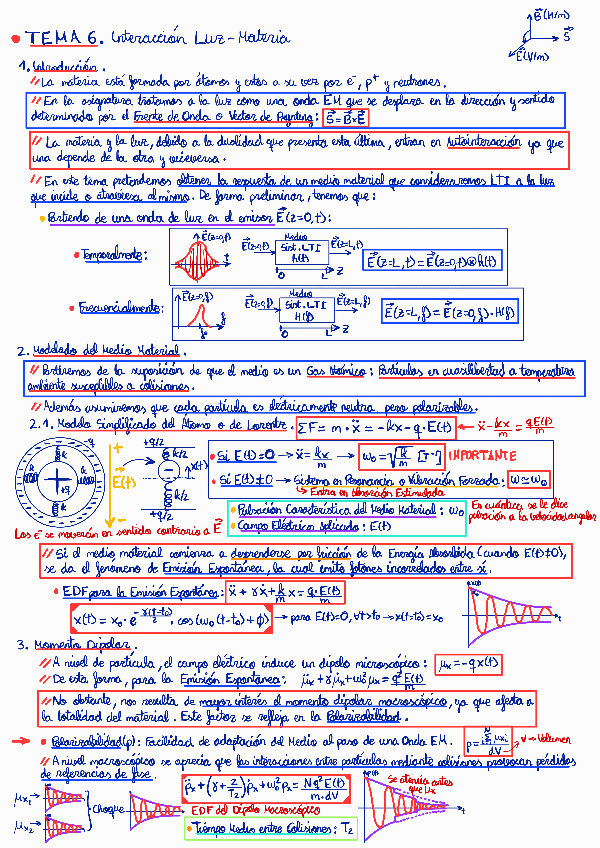 B(H/m)
• TEMA 6. Interacción Luz-Materia
S
E(V/m)
1. Introducción.
// La materia está formada por átomos y estos a su vez por e⁻, p⁺ y neutrones.
// En la asignatura tratamos a la luz como una onda EM que se desplaza en la dirección y sentido
determinado por el Frente de Onda o Vector de Poynting: S = B×E
// La materia y la luz, debido a la dualidad que presenta esta última, entran en autointeracción ya que
una depende de la otra y viceversa.
// En este tema pretendemos obtener la respuesta de un medio material que consideraremos LTI a la luz
que incide o atraviesa al mismo. De forma preliminar, tenemos que:
• Partiendo de una onda de luz en el emisor E(z=0,t):
• Temporalmente:
E(z=0,t)
t
E(z=0,t)
Medio
Sist. LTI
h(t)
E(z=L,t)
0 L z
E(z=L,t) = E(z=0,t)⊗h(t)
• Frecuencialmente:
E(z=0,f)
f₀ f
E(z=0,f)
Medio
Sist. LTI
H(f)
E(z=L,f)
0 L z
E(z=L,f) = E(z=0,f)·H(f)
2. Modelado del Medio Material.
// Partiremos de la suposición de que el medio es un Gas Atómico: Partículas en cuasilibertad a temperatura
ambiente susceptibles a colisiones.
// Además asumiremos que cada partícula es eléctricamente neutra pero polarizables.
2.1. Modelo Simplificado del Átomo o de Lorentz.
ΣF = m·ẍ = -kx - q·E(t)
ẍ - kx/m = qE(t)/m
-q
k
k
k
k
+q
+
E(t)
-
+q/2
k/2
x(t)
k/2
+q/2
• Si E(t)=0 → ẍ = kx/m → ω₀ = √k/m
IMPORTANTE
• Si E(t)≠0 → Sistema en Resonancia o Vibración Forzada: ω≃ω₀
↳ Entra en Absorción Estimulada
• Pulsación Característica del Medio Material: ω₀
• Campo Eléctrico Aplicado: E(t)
En cuántica, se le dice
pulsación a la velocidad angular
Los e⁻ se moverán en sentido contrario a E
// Si el medio material comienza a desprenderse por fricción de la Energía Absorbida (cuando E(t)≠0),
se da el fenómeno de Emisión Espontánea, la cual emite fotones incorrelados entre sí.
• EDF para la Emisión Espontánea: ẍ + γẋ + k/m x = q·E(t)/m
x(t) = x₀·e^-γ(t-t₀)/2·cos(ω₀(t-t₀)+ϕ)
→ para E(t)=0, ∀t>t₀ → x(t=t₀)=x₀
x(t)
t
3. Momento Dipolar.
// A nivel de partícula, el campo eléctrico induce un dipolo microscópico: μₓ = -q x(t)
// De esta forma, para la Emisión Espontánea: μ̈ₓ + γμ̇ₓ + ω₀²μₓ = q²E(t)/m
// No obstante, nos resulta de mayor interés el momento dipolar macroscópico, ya que afecta a
la totalidad del material. Este factor se refleja en la Polarizabilidad.
→ • Polarizabilidad(p): Facilidad de adaptación del Medio al paso de una Onda EM.
V → Volumen
// A nivel macroscópico se aprecia que las interacciones entre partículas mediante colisiones provocan pérdidas
de referencias de fase.
μx₁
μx₂
Choque
p̈ₓ + (γ + 2/T₂)ṗₓ + ω₀²pₓ = Nq²E(t)/m·dV
• EDF del Dipolo Macroscópico
• Tiempo Medio entre Colisiones: T₂
Se atenúa antes
que μₓ
t